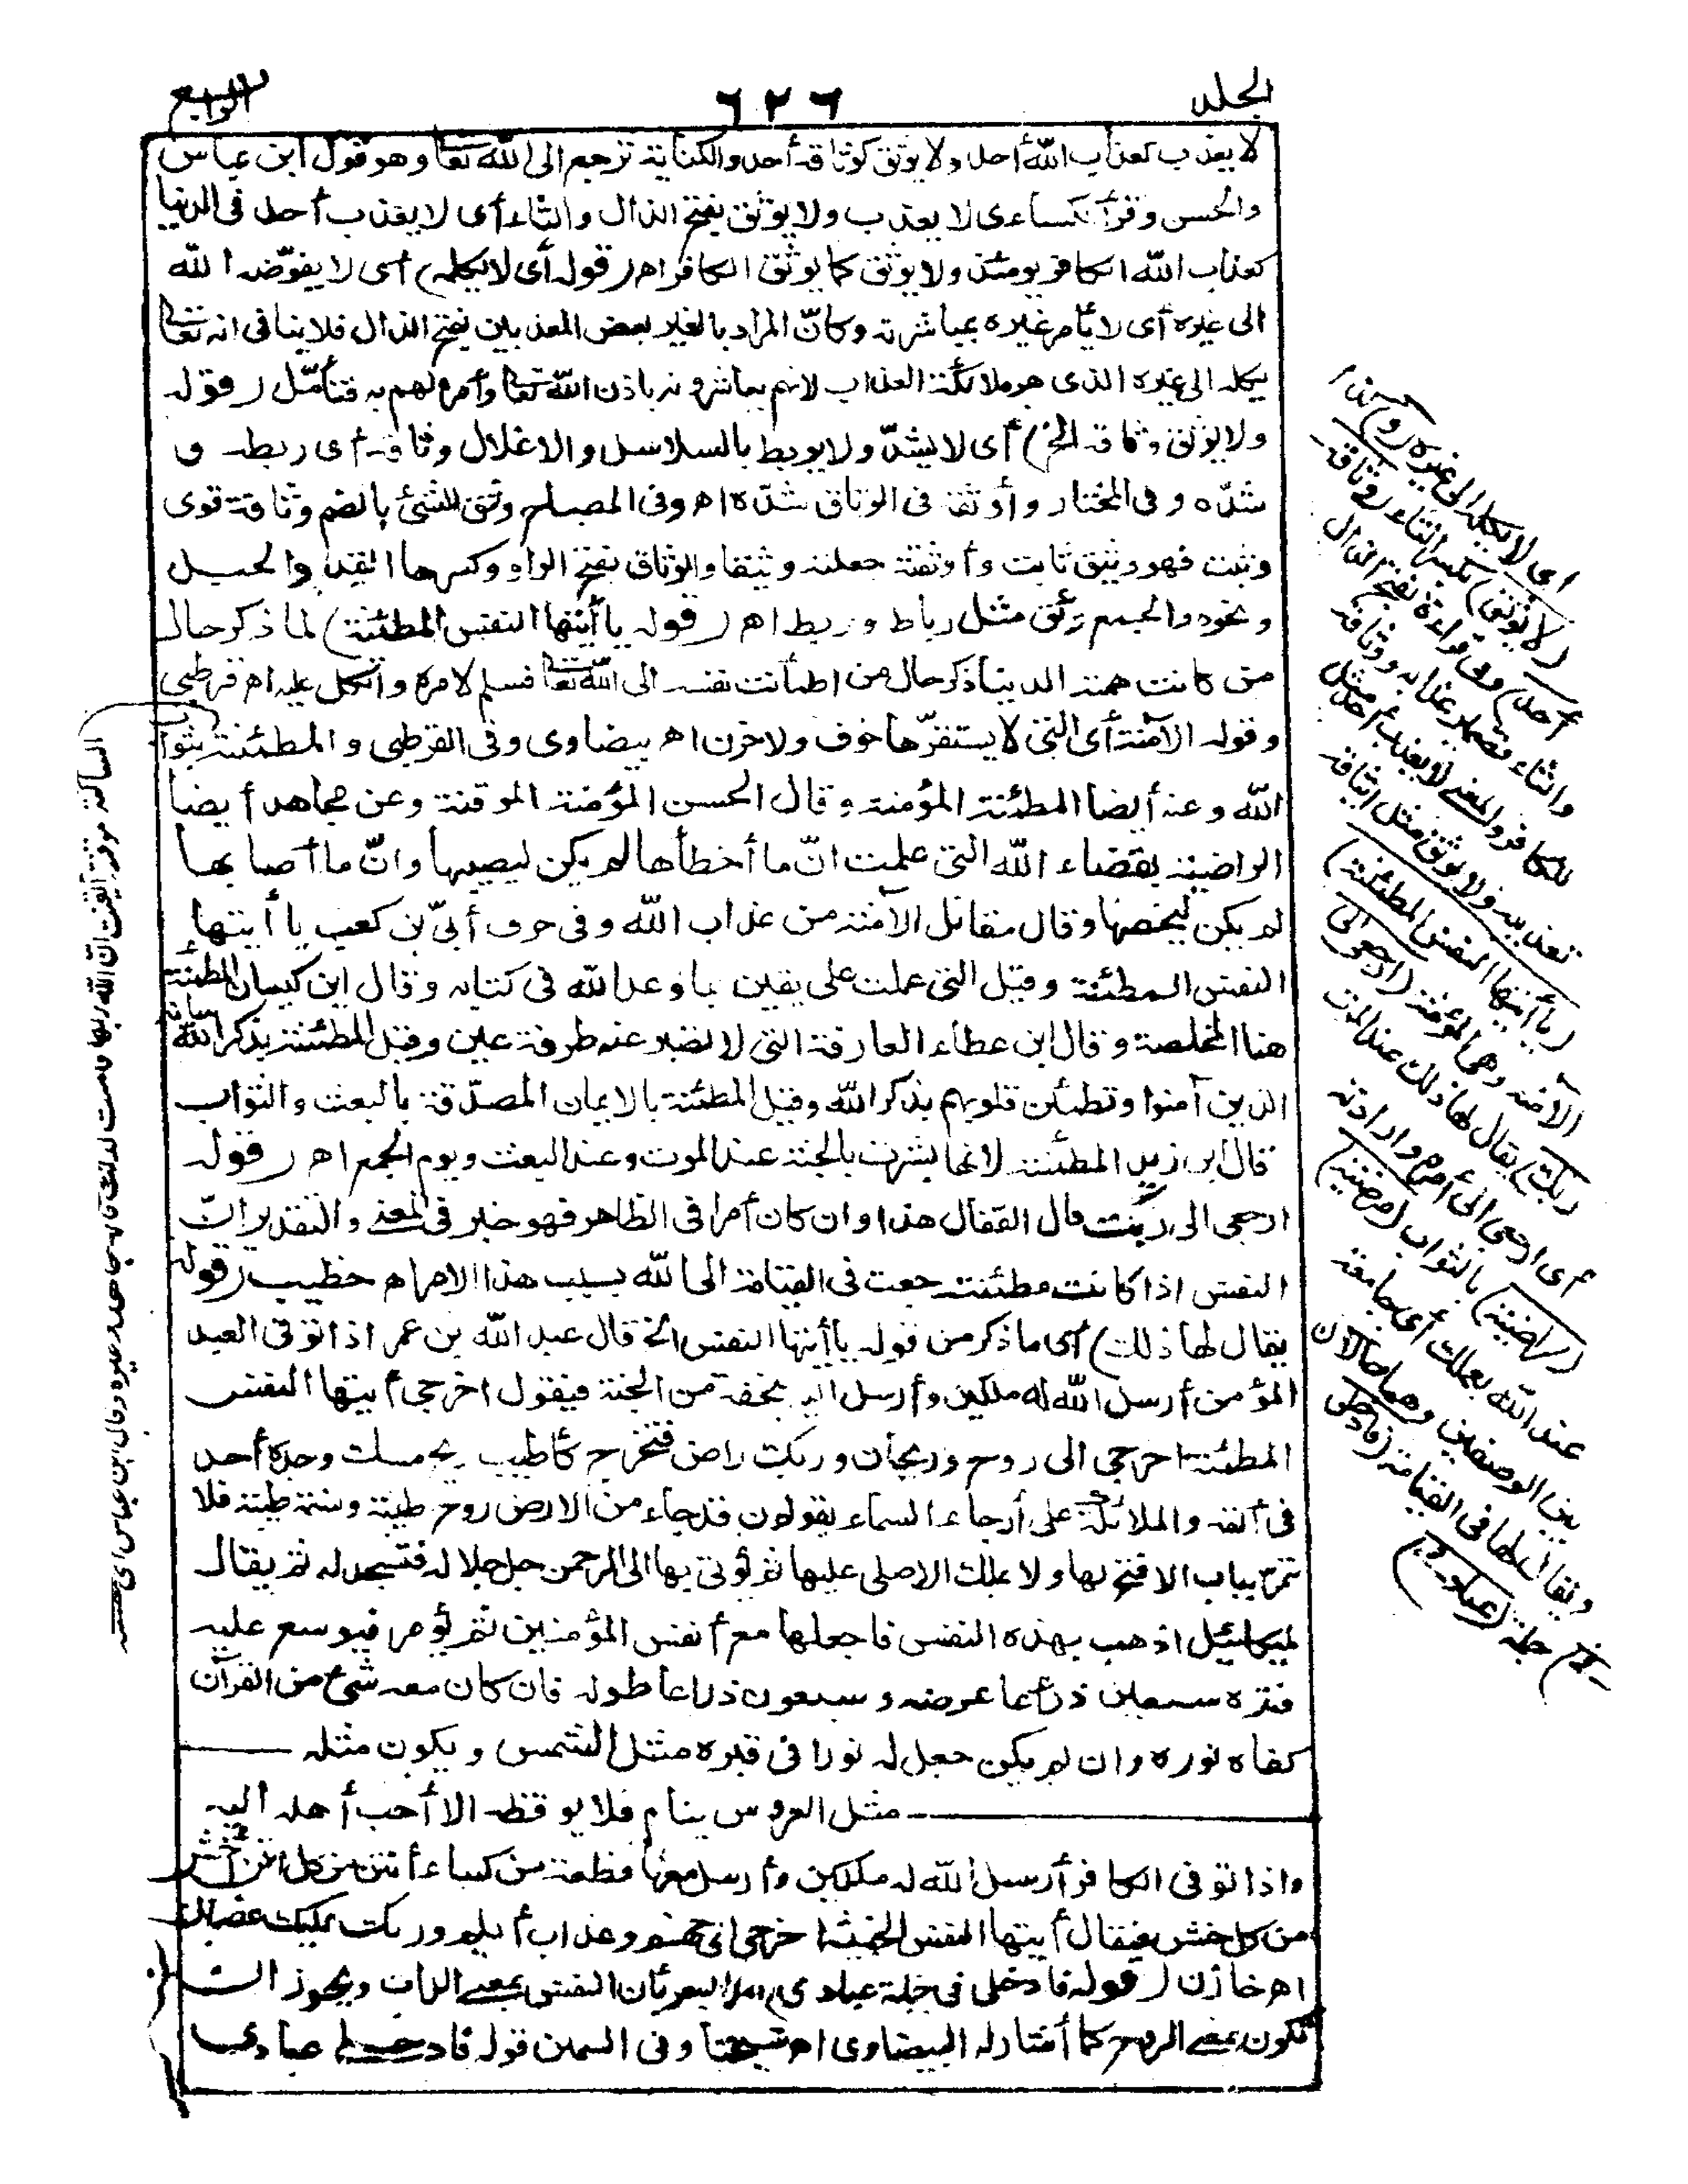 الجلد
٦٢٦
الرابع
لا يعذب كعذاب الله أحد ولا يوثق كوثاقه أحد والكناية ترجع الى الله تعا وهو قول ابن عباس
والحسن وقرأ الكساءى لا يعذب ولا يوثق بفتح الذال والثاء أى لا يعذب أحد فى الدنيا
كعذاب الله الكافر يومئذ ولا يوثق كما يوثق الكافر اه (قوله أى لا يكله) أى لا يفوّضه الله
الى غيره أى لا يأمر غيره بمباشرته وكانّ المراد بالغير بعض المعذبين بفتح الذال فلا ينافى انه تعا
يكله الى غيره الذى هو ملائكة العذاب لانهم يباشرونه باذن الله تعا وأمره لهم به فتأمّل (قوله
ولا يوثق وثاقه الخ) أى لا يشدّ ولا يربط بالسلاسل والاغلال وثاقه أى ربطه و
شدّه وفى المختار وأوثقه فى الوثاق شدّه اه وفى المصباح وثق الشئ بالضم وثاقة قوى
وثبت فهو وثيق ثابت وأوثقته جعلته وثيقا والوثاق بفتح الواو وكسرها القيد والحبل
ونحوه والجمع وثق مثل رباط وربط اه (قوله يا أيتها النفس المطئنة) لما ذكر حال
من كانت همته الدنيا ذكر حال من اطمأنت نفسه الى الله تعا فسلم لامره واتكل عليه اه قرطبى
وقوله الآمنة أى التى لا يستفزّها خوف ولا حزن اه بيضاوى وفى القرطبى والمطئنة بثواب
الله وعنه أيضا المطئنة المؤمنة وقال الحسن المؤمنة الموقنة وعن مجاهد أيضا
الراضية بقضاء الله التى علمت انّ ما أخطأها لم يكن ليصيبها وانّ ما أصابها
لم يكن ليخصها وقال مقاتل الآمنة من عذاب الله وفى حرف أبىّ بن كعب يا أيتها
النفس المطئنة وقيل التى عملت على يقين بما وعد الله فى كتابه وقال ابن كيسان المطئنة
هنا المخلصة وقال ابن عطاء العارفة التى لا تصبر عنه طرفة عين وقيل المطئنة بذكر الله
الذين آمنوا وتطمئن قلوبهم بذكر الله وقيل المطئنة بالايمان المصدّقة بالبعث والثواب
قال ابن زيد المطئنة لانها بشرت بالجنة عند الموت وعند البعث ويوم الجمع اه (قوله
ارجعى الى ربك قال القفال هذا وان كان أمرا فى الظاهر فهو خبر فى المعنى والتقدير انّ
النفس اذا كانت مطئنة رجعت فى القيامة الى الله بسبب هذا الامر اه خطيب (قوله
يقال لها ذلك) أى ما ذكر من قوله يا أيتها النفس الخ قال عبد الله بن عمر اذا توفى العبد
المؤمن أرسل الله له ملكين وأرسل اليه بتحفة من الجنة فيقول اخرجى أيتها النفس
المطئنة اخرجى الى روح وريحان وربك راض فتخرج كأطيب ريح مسك وجده أحد
فى أنفه والملائكة على أرجاء السماء يقولون قد جاء من الارض روح طيبة ونسمة طيبة فلا
تمرّ بباب الا فتح لها ولا بملك الا صلى عليها ثم يؤتى بها الى الرحمن جل جلاله فتسجد له ثم يقال
لميكائيل اذهب بهذه النفس فاجعلها مع أنفس المؤمنين ثم يؤمر فيوسع عليه
قبره سبعين ذراعا عرضه وسبعون ذراعا طوله فان كان معه شئ من القرآن
كفاه نوره وان لم يكن جعل له نورا فى قبره مثل الشمس ويكون مثله
مثل العروس ينام فلا يوقظه الا أحب أهله اليه
واذا توفى الكافر أرسل الله له ملكين وأرسل معها قطعة من كساء أنتن من كل نتن أخشن
من كل خشن فيقال أيتها النفس الخبيثة اخرجى الى جهنم وعذاب أليم وربك عليك غضبان
اه خازن (قوله فادخلى فى جملة عبادى) هذا يشعر بأن النفس بمعنى الذات ويجوز ان
تكون بمعنى الروح كما أشار له البيضاوى اه شيخنا وفى السمين قوله فادخلى عبادى
أى لا يكله الى غيره (و) كذا
(لا يوثق) بكسر الثاء (وثاقه
أحد) وفى قراءة بفتح الذال
والثاء فضمير عذابه ووثاقه
للكافر والمعنى لا يعذب أحد مثل
تعذيبه ولا يوثق مثل ايثاقه
(يا أيتها النفس المطئنة)
الآمنة وهى المؤمنة (ارجعى الى
ربك) يقال لها ذلك عند الموت
أى ارجعى الى أمره وارادته
(راضية) بالثواب (مرضية)
عند الله بعملك أى جامعة
بين الوصفين وهما حالان
ويقال لها فى القيامة (فادخلى
فى) جملة (عبادى)